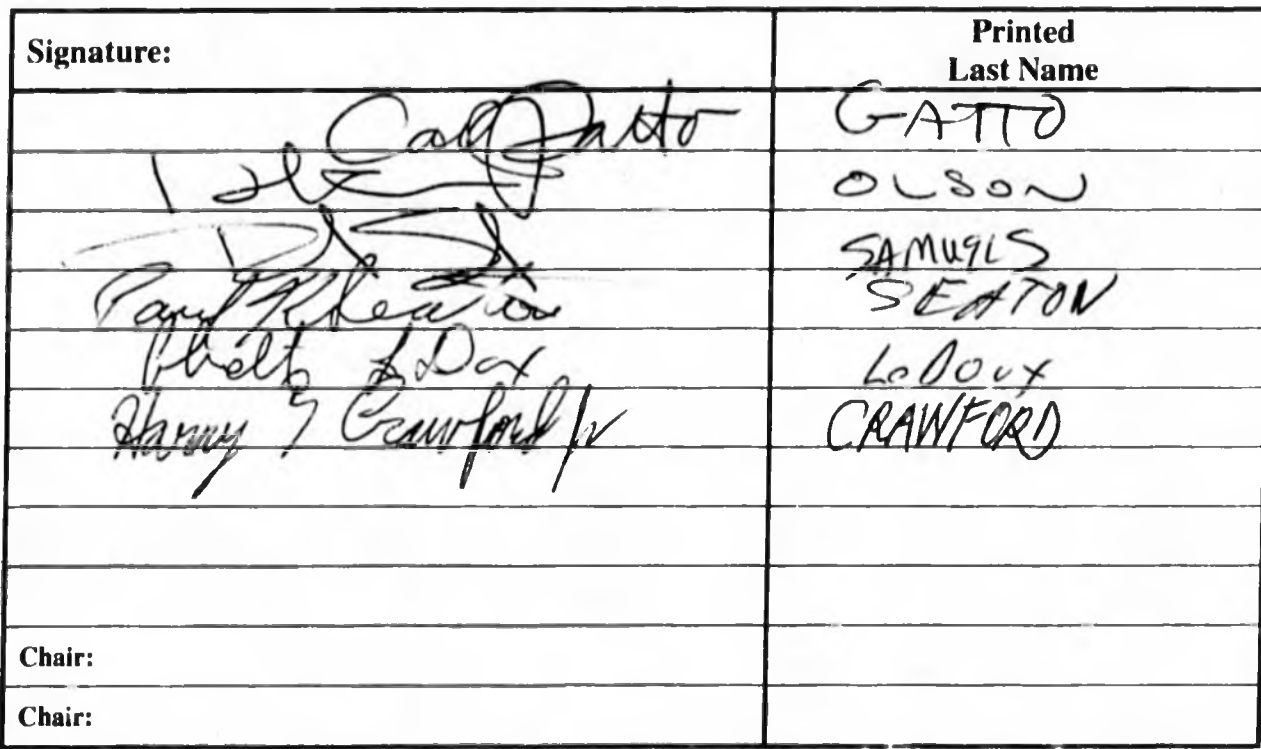 Signature: Printed
Last Name
Carl Gatto GATTO
OLSON
SAMUELS
Paul Seaton SEATON
LeDoux
Harry Crawford Jr CRAWFORD
Chair:
Chair: